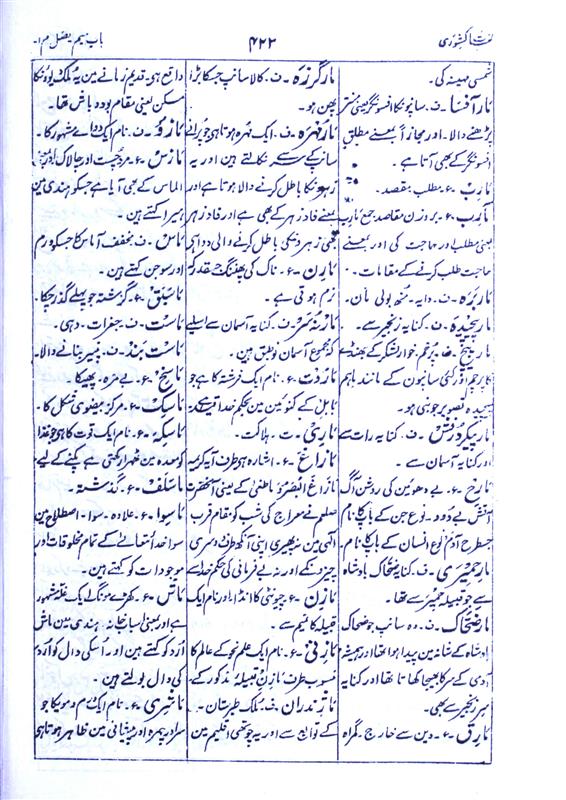 لغت کشوری
۴۲۲
باب میم بفصل م ا۔
شمسی مہینہ کی۔
مار آفسا۔ ف۔ سانپونکا افسونگر یعنی منتر
پڑھنے والا۔ اور مجازاً بمعنے مطلق
افسونگر کے بھی آتا ہے۔
مارب۔ ع۔ مطلب مقصد۔
مآرب۔ ع۔ بروزن مقاصد جمع مارب
یعنی مطلب اور حاجت کی اور بمعنے
حاجت طلب کرنے کے مقامات۔
ماربرہ۔ ف۔ دایہ۔ منھ بولی ماں۔
مار پیچیدہ۔ ف۔ کنایہ زنجیر سے۔
مار پیچ۔ پرخم۔ خوار لشکر کے جھنڈے
کا پرچم اور کئی سانپوں کے مانند باہم
پیچیدہ تصویر جو بنی ہو۔
مار پیکر درفش۔ ف۔ کنایہ رات سے
اور کنایہ آسمان سے۔
مارج۔ ع۔ بے دھوئیں کی روشن آگ
آتش بے دود۔ نوع جن کے باپ کا نام
جسطرح آدم نوع انسان کے باپ کا نام
مار حمیری۔ ف۔ کنایہ ضحاک بادشاہ
سے جو قبیلہ حمیر سے تھا۔
مار ضحاک۔ ف۔ وہ سانپ جو ضحاک
بادشاہ کے شانہ میں پیدا ہوا تھا اور ہمیشہ
آدمی کے سر کا بھیجا کھاتا تھا اور کنایہ
زنجیر سے بھی۔
مارق۔ ع۔ دین سے خارج۔ گمراہ
مار گرزہ۔ ف۔ کالا سانپ جسکا بڑا
پھن ہو۔
مار مہرہ۔ ف۔ ایک مہرہ ہوتا ہی جو پرانے
سانپ کے سر سے نکالتے ہیں اور یہ
زہر کا باطل کرنے والا ہوتا ہے اور
بمعنے فادزہر کے بھی ہے اور فادزہر
یعنی زہر ونکی باطل کرنے والی دوا ہی
مارن۔ ع۔ ناک کی پھننگ جسقدر کہ
نرم ہوتی ہے۔
مار نہ سر۔ ف۔ کنایہ آسمان سے اسلیے
کہ مجموع آسمان نو طبق ہیں۔
ماروت۔ ع۔ نام ایک فرشتہ کا ہے جو
بابل کے کنوئیں میں بحکم خدا قید ہے
ماری۔ ت۔ ہلاکت۔
مازاغ۔ ع۔ اشارہ ہی طرف آیہ کریمہ
مازاغ البصر وماطغیٰ کے یعنی آنحضرت
صلعم نے معراج کی شب کو مقام قرب
الٰہی میں نہ پھیری اپنی آنکھ طرف دوسری
چیز کے اور نہ بے فرمانی کی حکم خدا سے
مازن۔ ع۔ چیونٹی کا انڈا۔ اور نام ایک
قبیلہ کا تمیم سے۔
مازنی۔ ع۔ نام ایک علم نحو کے عالم کا
منسوب طرف مازن قبیلہ مذکور کے۔
مازندران۔ ف۔ ملک طبرستان۔
کے توابع سے اور یہ چوتھی اقلیم میں
واقع ہی۔ قدیم زمانے میں یہ ملک دیوونکا
مسکن یعنی مقام بود وباش تھا۔
مازو۔ ف۔ نام ایک دوائے مشہور کا۔
ماس۔ ع۔ مرد چست اور چالاک اور بمعنی
الماس کے بھی آیا ہے جسکو ہندی میں
ہیرا کہتے ہیں۔
ماس۔ ف۔ مخفف آماس کا جسکو ورم
اور سوجن کہتے ہیں۔
ماسبق۔ ع۔ گزشتہ جو پہلے گذر چکا۔
ماست۔ ف۔ جغرات۔ دہی۔
ماست بند۔ ف۔ پنیر بنانے والا۔
ماسخ۔ ع۔ بے مزہ۔ پھیکا۔
ماسک۔ ع۔ مرکز بیضوی شکل کا۔
ماسکہ۔ ع۔ نام ایک قوت کا ہی جو غذا
کو معدہ میں ٹھہرا رکھتی ہے پکنے کے لیے
ماسلف۔ ع۔ گذشتہ۔
ماسوا۔ ع۔ علاوہ۔ سوا۔ اصطلاح میں
سوا خدا تعالےٰ کے تمام مخلوقات اور
موجودات کو کہتے ہیں۔
ماش۔ ع۔ کھڑے مونگ ایک غلہ مشہور
ہے اور بمعنی اسباب خانہ۔ ہندی میں ماش
اُرد کو کہتے ہیں اور اُسکی دال کو اُرد
کی دال بولتے ہیں۔
ماشری۔ ع۔ نام ایک ورم دموی کا جو
سر اور چہرہ اور پیشانی میں ظاہر ہوتا ہی